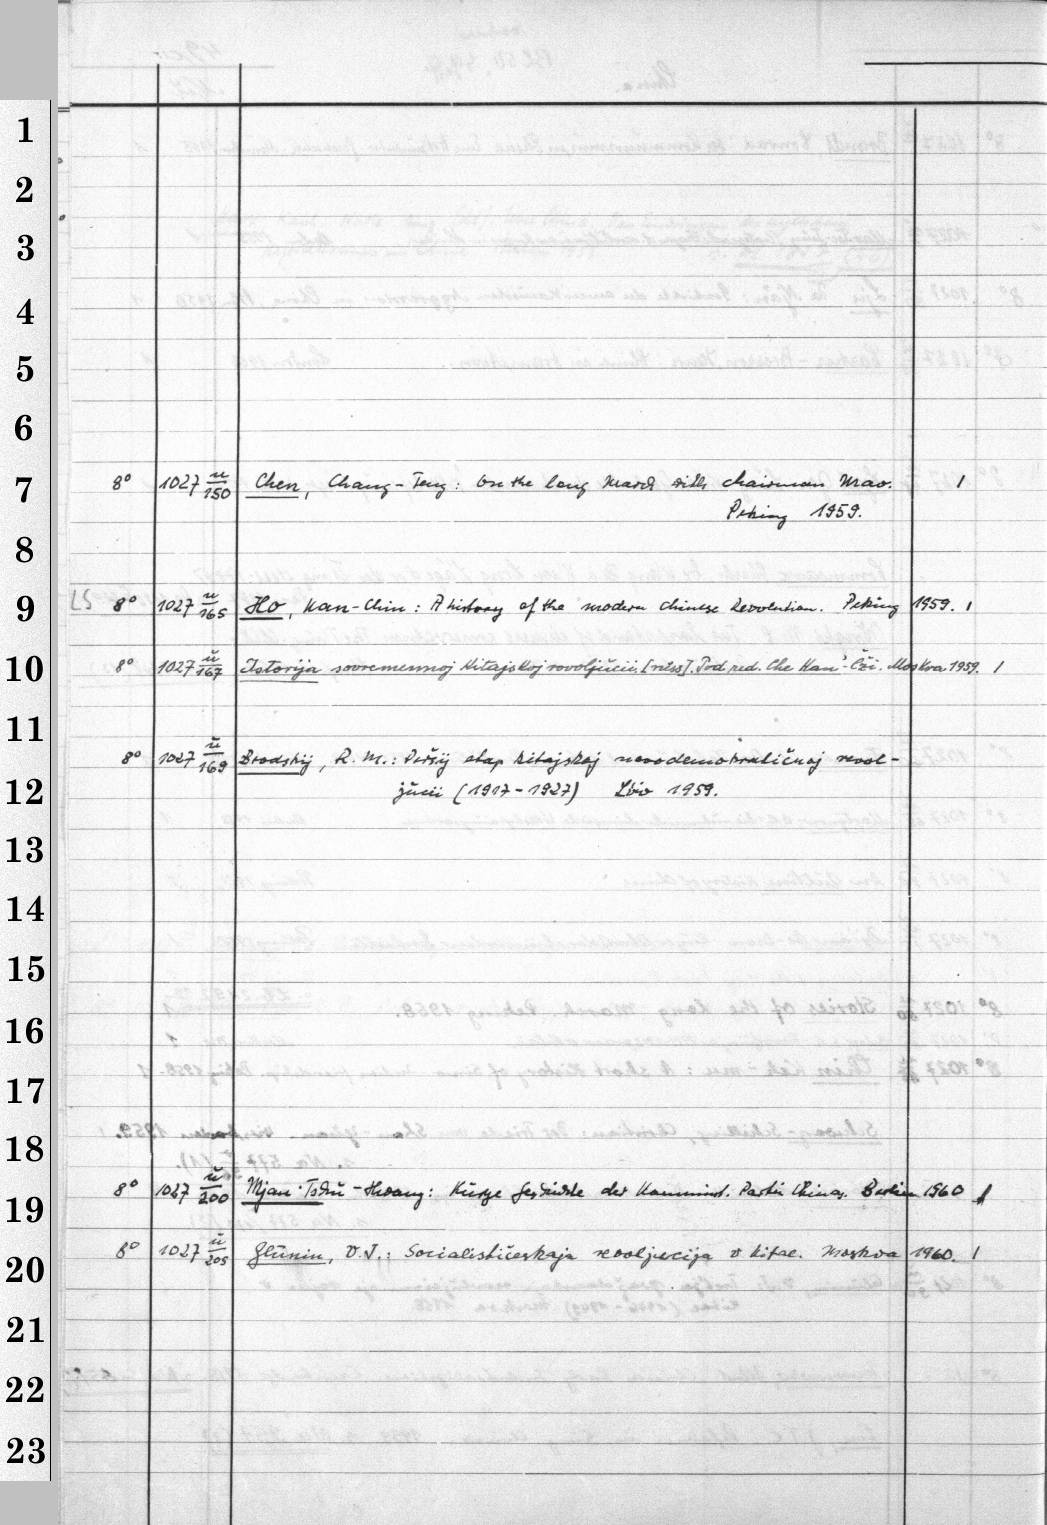 1
2
3
4
5
6
7
8° 1027 ü/150 Chen, Chang-Teng: On the long March with chairman Mao. 1
Peking 1959.
8
9
LS 8° 1027 ü/165 Ho, Kan-Chih: A history of the modern chinese Revolution. Peking 1959. 1
10
8° 1027 ü/167 Istorija sovremennoj kitajskoj revoljucii. [russ]. Pod red. Che Kan'-Čži. Moskva 1959. 1
11
8° 1027 ü/169 Brodskij, R. M.: Peršij etap kitajskoj novodemokratičnoj revol-
12
jucii (1917-1927) Lviv 1959.
13
14
15
16
17
18
19
8° 1027 ü/200 Mjau Tshu-Hwang: Kurze Geschichte der Kommunist. Partei Chinas. Berlin 1960 1
20
8° 1027 ü/205 Glunin, V. I.: Socialističeskaja revoljucija v Kitae. Moskva 1960. 1
21
22
23